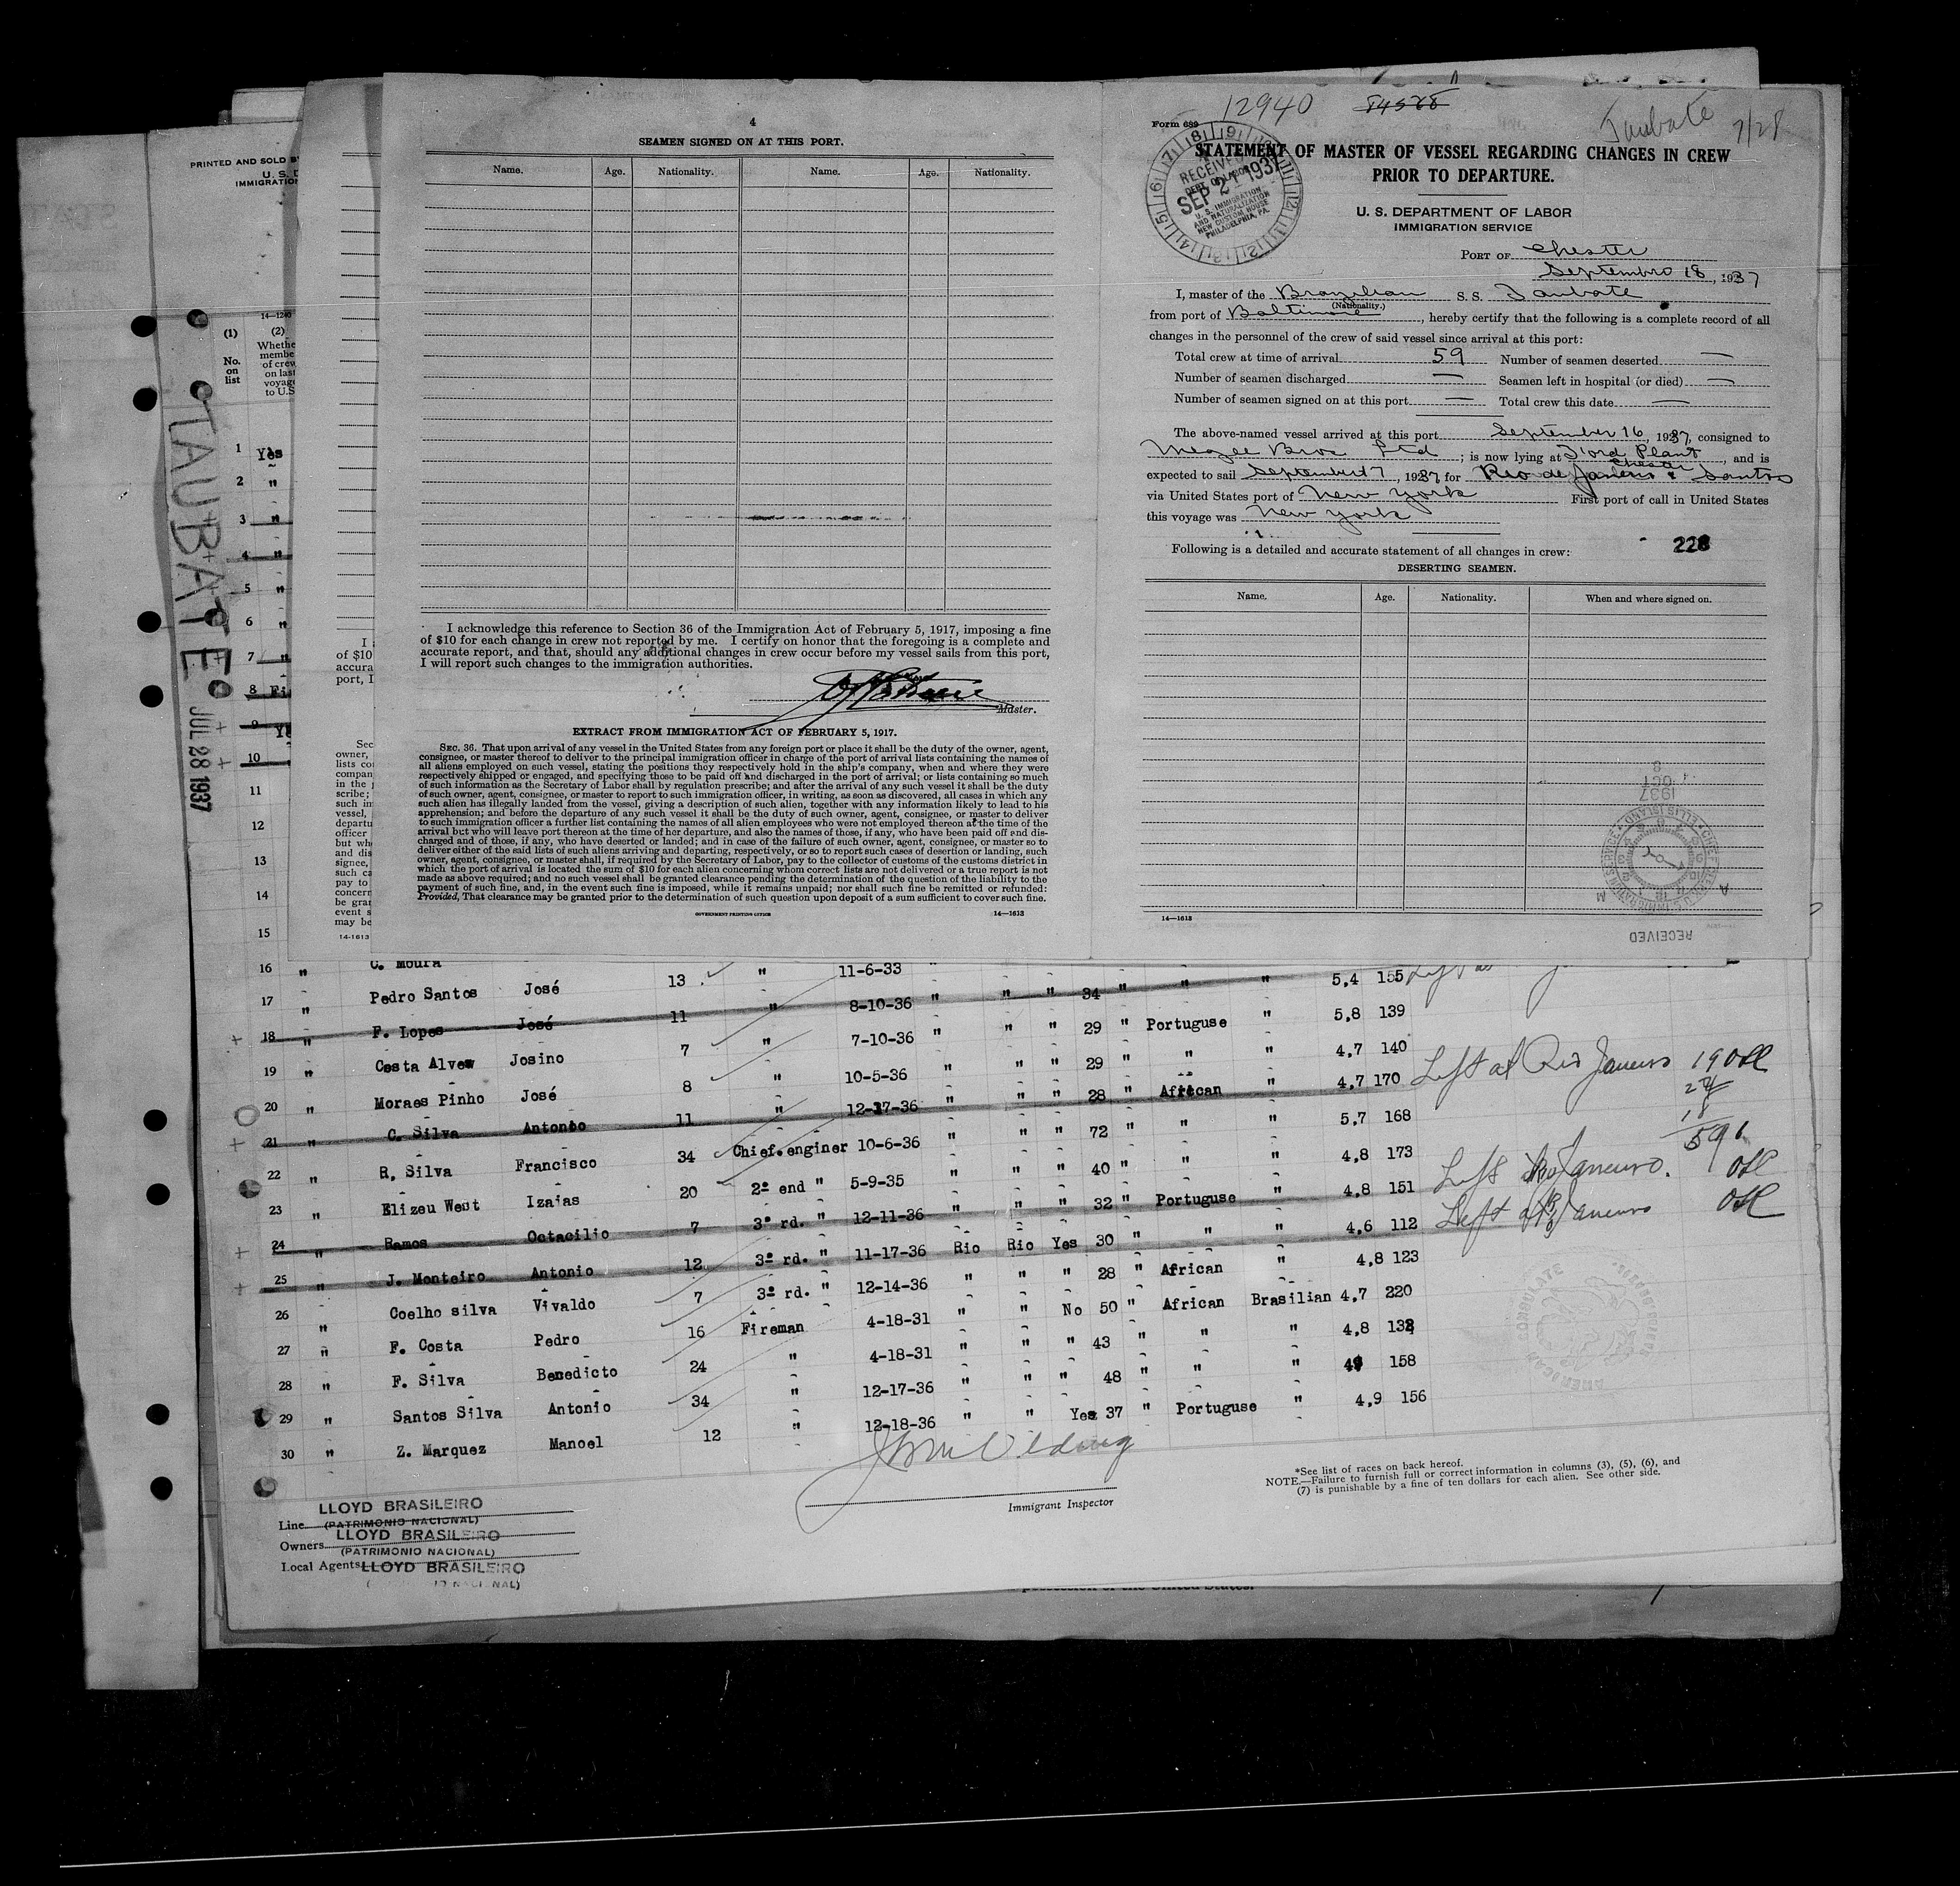 PRINTED AND SOLD B
U. S. D
IMMIGRATION
14-1240
(1) (2)
No. on list
Whethe
membe
of crew
on last
voyage
to U.S
TAUBATE
JUL 28 1937
1 Yes
2 "
3 "
4 "
5 "
6 "
7 "
8 Fi
9 Ye
10
11
12
13
14
15
I
of $10
accura
port, I
Sec
owner,
lists co
compan
in the
scribe;
such in
vessel,
departu
officer
but wh
and dis
signee,
such ca
pay to
concern
be gran
event s
may be
14-1613
4
SEAMEN SIGNED ON AT THIS PORT.
Name. Age. Nationality. Name. Age. Nationality.
I acknowledge this reference to Section 36 of the Immigration Act of February 5, 1917, imposing a fine
of $10 for each change in crew not reported by me. I certify on honor that the foregoing is a complete and
accurate report, and that, should any additional changes in crew occur before my vessel sails from this port,
I will report such changes to the immigration authorities.
Master.
EXTRACT FROM IMMIGRATION ACT OF FEBRUARY 5, 1917.
SEC. 36. That upon arrival of any vessel in the United States from any foreign port or place it shall be the duty of the owner, agent,
consignee, or master thereof to deliver to the principal immigration officer in charge of the port of arrival lists containing the names of
all aliens employed on such vessel, stating the positions they respectively hold in the ship's company, when and where they were
respectively shipped or engaged, and specifying those to be paid off and discharged in the port of arrival; or lists containing so much
of such information as the Secretary of Labor shall by regulation prescribe; and after the arrival of any such vessel it shall be the duty
of such owner, agent, consignee, or master to report to such immigration officer, in writing, as soon as discovered, all cases in which any
such alien has illegally landed from the vessel, giving a description of such alien, together with any information likely to lead to his
apprehension; and before the departure of any such vessel it shall be the duty of such owner, agent, consignee, or master to deliver
to such immigration officer a further list containing the names of all alien employees who were not employed thereon at the time of the
arrival but who will leave port thereon at the time of her departure, and also the names of those, if any, who have been paid off and dis-
charged and of those, if any, who have deserted or landed; and in case of the failure of such owner, agent, consignee, or master so to
deliver either of the said lists of such aliens arriving and departing, respectively, or so to report such cases of desertion or landing, such
owner, agent, consignee, or master shall, if required by the Secretary of Labor, pay to the collector of customs of the customs district in
which the port of arrival is located the sum of $10 for each alien concerning whom correct lists are not delivered or a true report is not
made as above required; and no such vessel shall be granted clearance pending the determination of the question of the liability to the
payment of such fine, and, in the event such fine is imposed, while it remains unpaid; nor shall such fine be remitted or refunded:
Provided, That clearance may be granted prior to the determination of such question upon deposit of a sum sufficient to cover such fine.
GOVERNMENT PRINTING OFFICE 14—1613
12940 Taubate 7/28
Form 689
STATEMENT OF MASTER OF VESSEL REGARDING CHANGES IN CREW
PRIOR TO DEPARTURE.
RECEIVED
DEPT. OF LABOR
SEP 21 1937
U. S. IMMIGRATION
AND NATURALIZATION
NEW CUSTOM HOUSE
PHILADELPHIA, PA.
U. S. DEPARTMENT OF LABOR
IMMIGRATION SERVICE
PORT OF Chester
Septembro 18, 1937
I, master of the Brazilian S. S. Taubate
(Nationality.)
from port of Baltimore, hereby certify that the following is a complete record of all
changes in the personnel of the crew of said vessel since arrival at this port:
Total crew at time of arrival 59 Number of seamen deserted —
Number of seamen discharged — Seamen left in hospital (or died) —
Number of seamen signed on at this port — Total crew this date —
The above-named vessel arrived at this port September 16, 1937, consigned to
Megee Bros Ltd; is now lying at Ford Plant Chester, and is
expected to sail September 17, 1937 for Rio de Janeiro & Santos
via United States port of New York First port of call in United States
this voyage was New York
Following is a detailed and accurate statement of all changes in crew: 228
DESERTING SEAMEN.
Name. Age. Nationality. When and where signed on.
8
OCT
1937
CHIEF U.S. IMMIGRATION SERVICE ELLIS ISLAND
A M
RECEIVED
14—1613
16 " C. Moura 11-6-33
17 " Pedro Santos José 13 " 8-10-36 " " " 34 " " " 5,4 155
18 " F. Lopes José 11 " 7-10-36 " " " 29 " Portuguse " 5,8 139
19 " Costa Alvew Josino 7 " 10-5-36 " " " 29 " " " 4,7 140
20 " Moraes Pinho José 8 " 12-17-36 " " " 28 " African " 4,7 170 Left at Rio Janeiro
21 " C. Silva Antonio 11
22 " R, Silva Francisco 34 Chief.enginer 10-6-36 " " " 72 " " " 5,7 168
23 " Elizeu West Izaias 20 2º end " 5-9-35 " " " 40 " " " 4,8 173
24 " Ramos Octacilio 7 3º rd. " 12-11-36 " " " 32 " Portuguse " 4,8 151 Left Rio Janeiro.
25 " J. Monteiro Antonio 12 3º rd. " 11-17-36 Rio Rio Yes 30 " " " 4,6 112 Left at Rio Janeiro
26 " Coelho silva Vivaldo 7 3º rd. " 12-14-36 " " " 28 " African " 4,8 123
27 " F. Costa Pedro 16 Fireman 4-18-31 " " No 50 " African Brasilian 4,7 220
28 " F. Silva Benedicto 24 " 4-18-31 " " " 43 " " " 4,8
29 " Santos Silva Antonio 34 " 12-17-36 " " " 48 " " " 158
30 " Z. Marquez Manoel 12 " 12-18-36 " " Yes 37 " Portuguse " 4,9 156
19
24
18
59
AMERICAN CONSULATE
Immigrant Inspector
*See list of races on back hereof.
NOTE.—Failure to furnish full or correct information in columns (3), (5), (6), and
(7) is punishable by a fine of ten dollars for each alien. See other side.
Line LLOYD BRASILEIRO
(PATRIMONIO NACIONAL)
Owners LLOYD BRASILEIRO
(PATRIMONIO NACIONAL)
Local Agents LLOYD BRASILEIRO
of the United States.